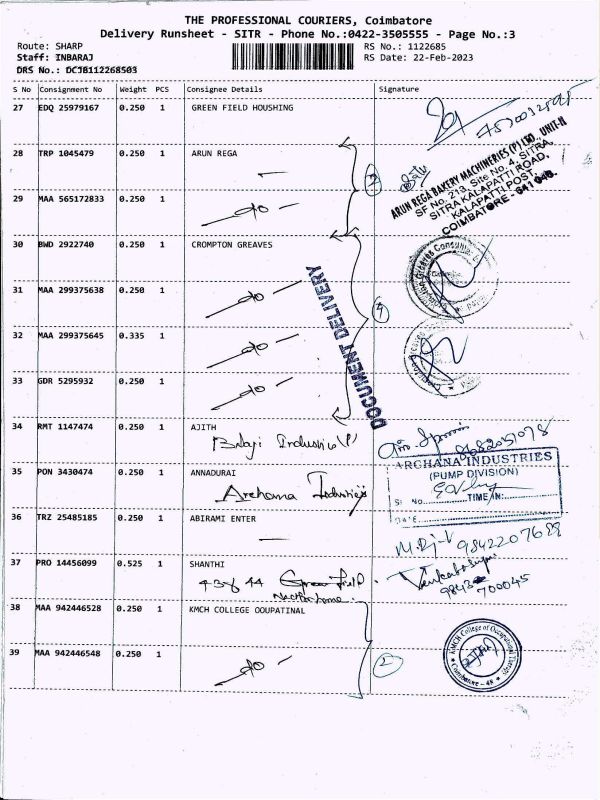 THE PROFESSIONAL COURIERS, Coimbatore
Delivery Runsheet - SITR - Phone No.:0422-3505555 - Page No.:3
Route: SHARP RS No.: 1122685
Staff: INBARAJ RS Date: 22-Feb-2023
DRS No.: DCJB112268503
S No Consignment No Weight PCS Consignee Details Signature
27 EDQ 25979167 0.250 1 GREEN FIELD HOUSHING
28 TRP 1045479 0.250 1 ARUN REGA
ARUN REGA BAKERY MACHINERIES (P) LTD., UNIT-II
SF No. 213, Site No. 4, SITRA,
SITRA KALAPATTI ROAD,
KALAPATTI POST,
COIMBATORE - 641 048.
29 MAA 565172833 0.250 1
do
2
30 BWD 2922740 0.250 1 CROMPTON GREAVES
31 MAA 299375638 0.250 1
do
DOCUMENT DELIVERY
4
32 MAA 299375645 0.335 1
do
33 GDR 5295932 0.250 1
do
34 RMT 1147474 0.250 1 AJITH
Balaji Industries (P)
35 PON 3430474 0.250 1 ANNADURAI
Archana Industries
ARCHANA INDUSTRIES
(PUMP DIVISION)
Sl No. TIME IN:
DATE
36 TRZ 25485185 0.250 1 ABIRAMI ENTER
9842207688
37 PRO 14456099 0.525 1 SHANTHI
43 of 44 Green Field
9843 700045
38 MAA 942446528 0.250 1 KMCH COLLEGE OOUPATINAL
39 MAA 942446548 0.250 1
do
2
KMCH College of Occupational Therapy
Coimbatore - 48